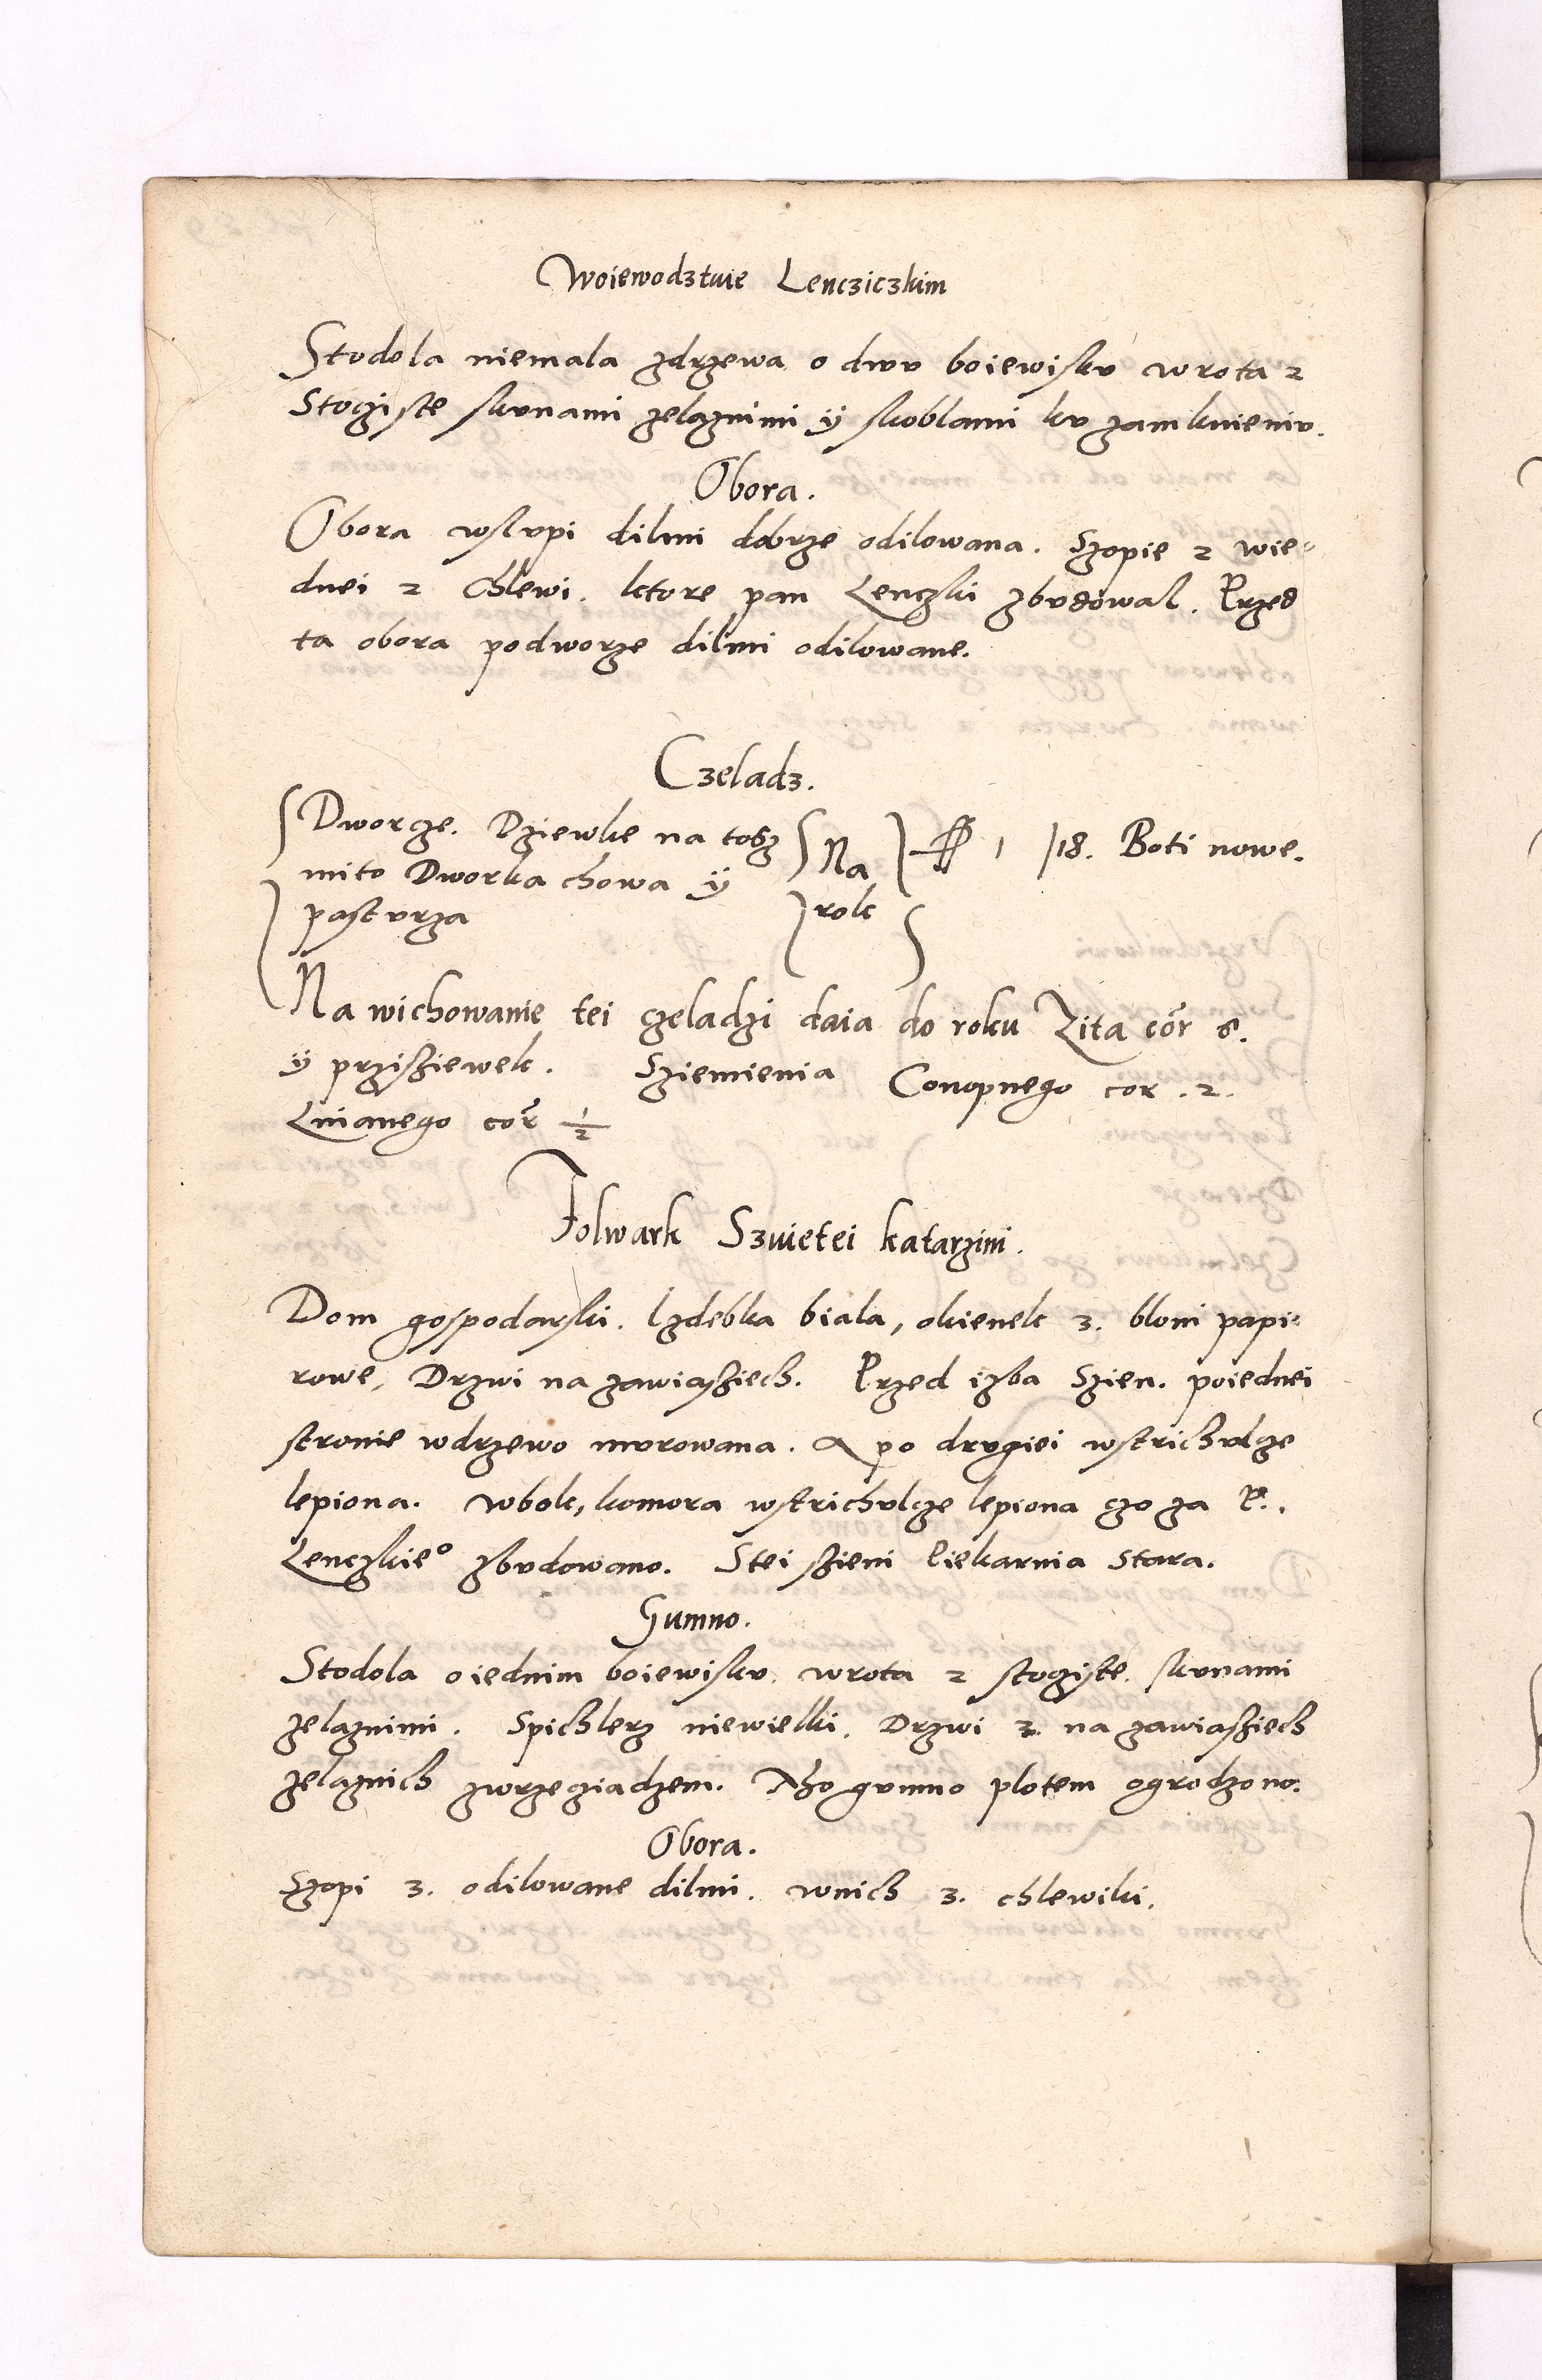 Woiewodztwie Lencziczkim
Stodola niemala zdrzewa o dwu boiewisku wrota 2
Stocziste skunami zelaznimi ÿ skoblami ku zamknieniu.
Obora.
Obora wslupi dilmi dobrze odilowana. Szopie 2 wie-
dnei 2 Chlewi. ktore pan Lenczki zbudowal. Przed
ta obora podworze dilmi odilowane.
Czeladz.
Dworcze. Dziewke na tosz
mito Dworka chowa ÿ
pasturza
Na
rok
1 /18. Boti nowe.
Na wichowanie tei czeladzi daia do roku Zita cor 6.
ÿ prziszewek. Sziemienia Conopnego cor. 2.
Lnianego cor 1/2
Folwark Szwietei katarzini.
Dom gospodarski. Izdebka biala, okienek 3. bloni papi-
rowe, Drzwi na zawiasziech. Przed izba Szien. poiednei
stronie wdrzewo murowana. A po drugiei wstrichulcze
lepiona. wbok, komora wstrichulcze lepiona czo za P..
Lenczkieo zbudowano. Stei szieni Piekarnia stara.
Gumno.
Stodola oiednim boiewisku. wrota 2 stocziste. skunami
zelaznimi. Spichlerz niewielki. Drzwi 3 na zawiasziech
zelaznich zwrzecziadzem. gumno plotem ogrodzono.
Obora.
Szopi 3. odilowane dilmi. wnich 3. chlewiki.